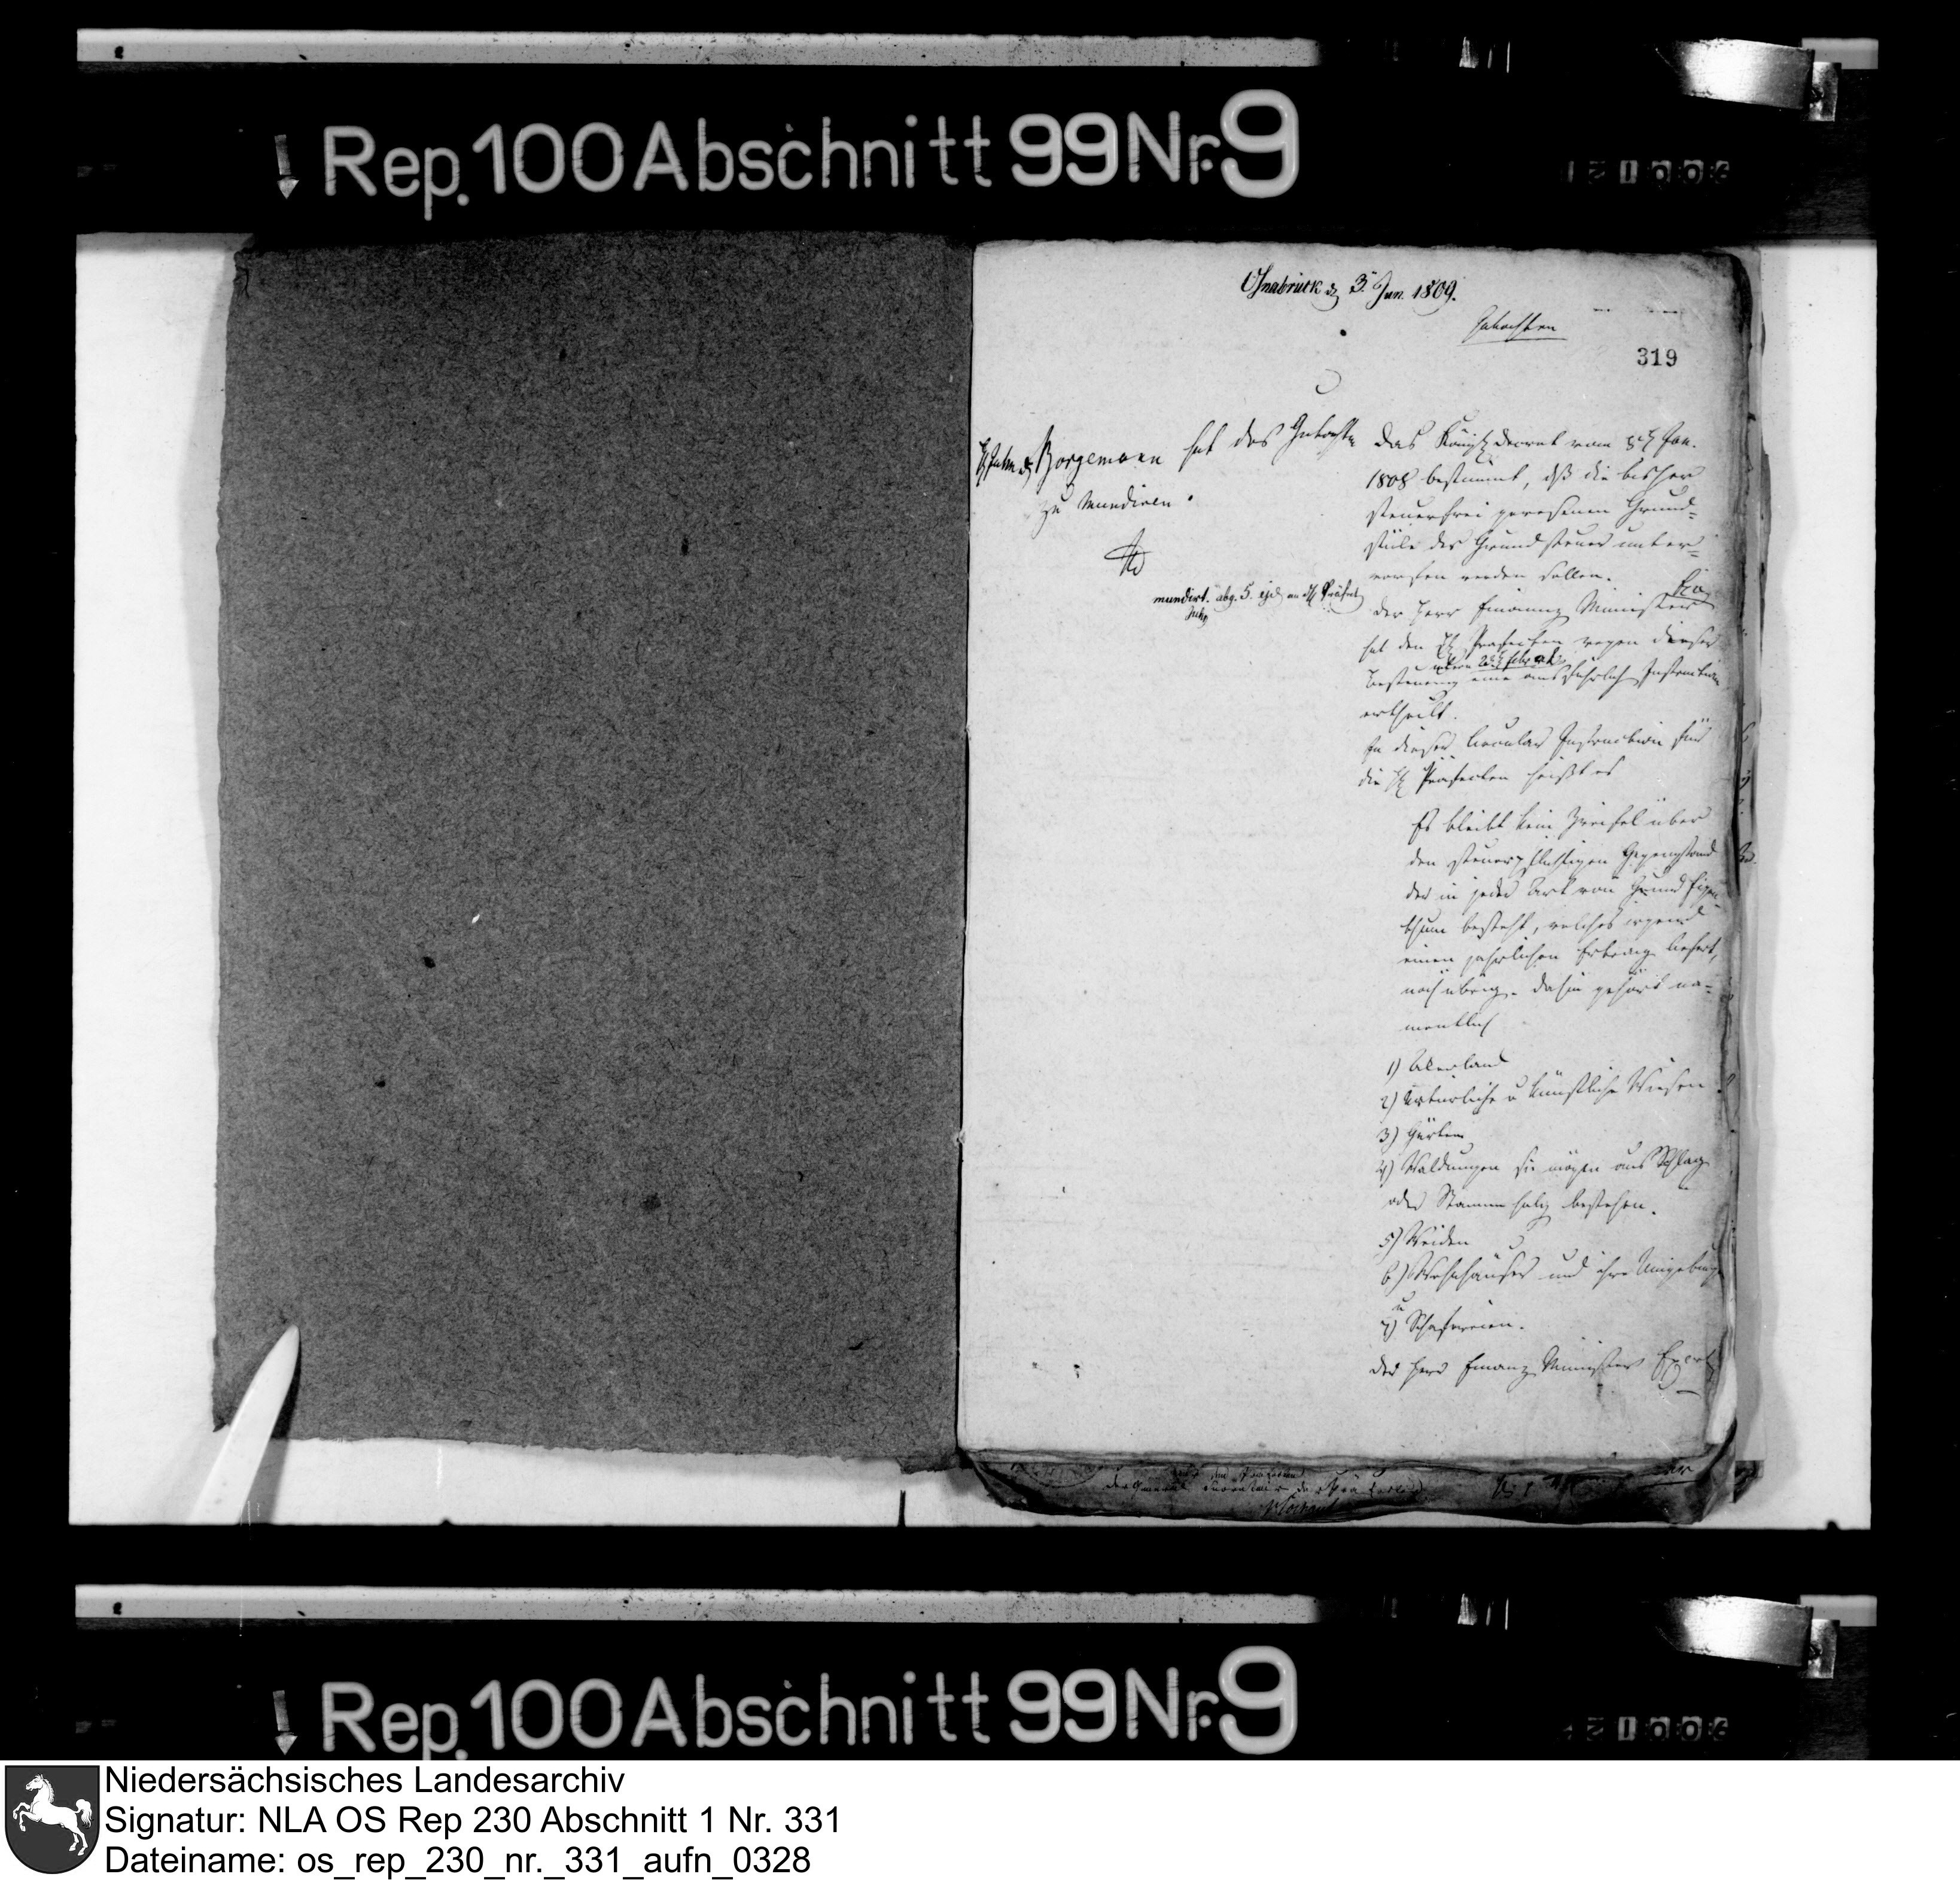 Rep. 100 Abschnitt 99 Nr. 9
Osnabrück d 3 Jan. 1809.
Gutachten
319
Borgemann hat das Gutachten
zu mundiren.
mundirt. abg. 5. ejd
Das Königl Decret vom 8t Jan.
1808 bestimmt, dß die bisher
steuerfrei gewesenen Grund=
stücke der Grundsteuer unter=
worfen werden sollen.
Der Herr Finanz Minister
hat den Präfecten wegen dieser
Besteurung eine ausführliche Instruction
ertheilt.
In dieser Circular Instruction für
die Präfecten heißt es
Es bleibt kein Zweifel über
den steuerpflichtigen Gegenstand
der in jeder Art von Grund Eigen
thum besteht, welches irgend
einen jährlichen Ertrag liefert,
noch übrig. Dahin gehört na=
mentlich
1) Ackerland
2) Natürliche u künstliche Wiesen
3) Gärten
4) Waldungen sie mögen aus Schlag
oder Stammholz bestehen.
5) Weiden
6) Wohnhäuser und ihre Umgebung
u
7) Schäfereien.
Der Herr Finanz Minister
Rep. 100 Abschnitt 99 Nr. 9
Niedersächsisches Landesarchiv
Signatur: NLA OS Rep 230 Abschnitt 1 Nr. 331
Dateiname: os_rep_230_nr._331_aufn_0328